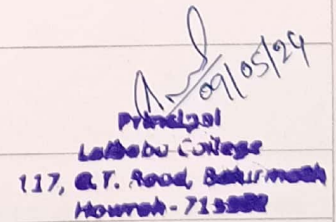 09/05/24
Principal
Lalbaba College
117, G.T. Road, Belurmath
Howrah -